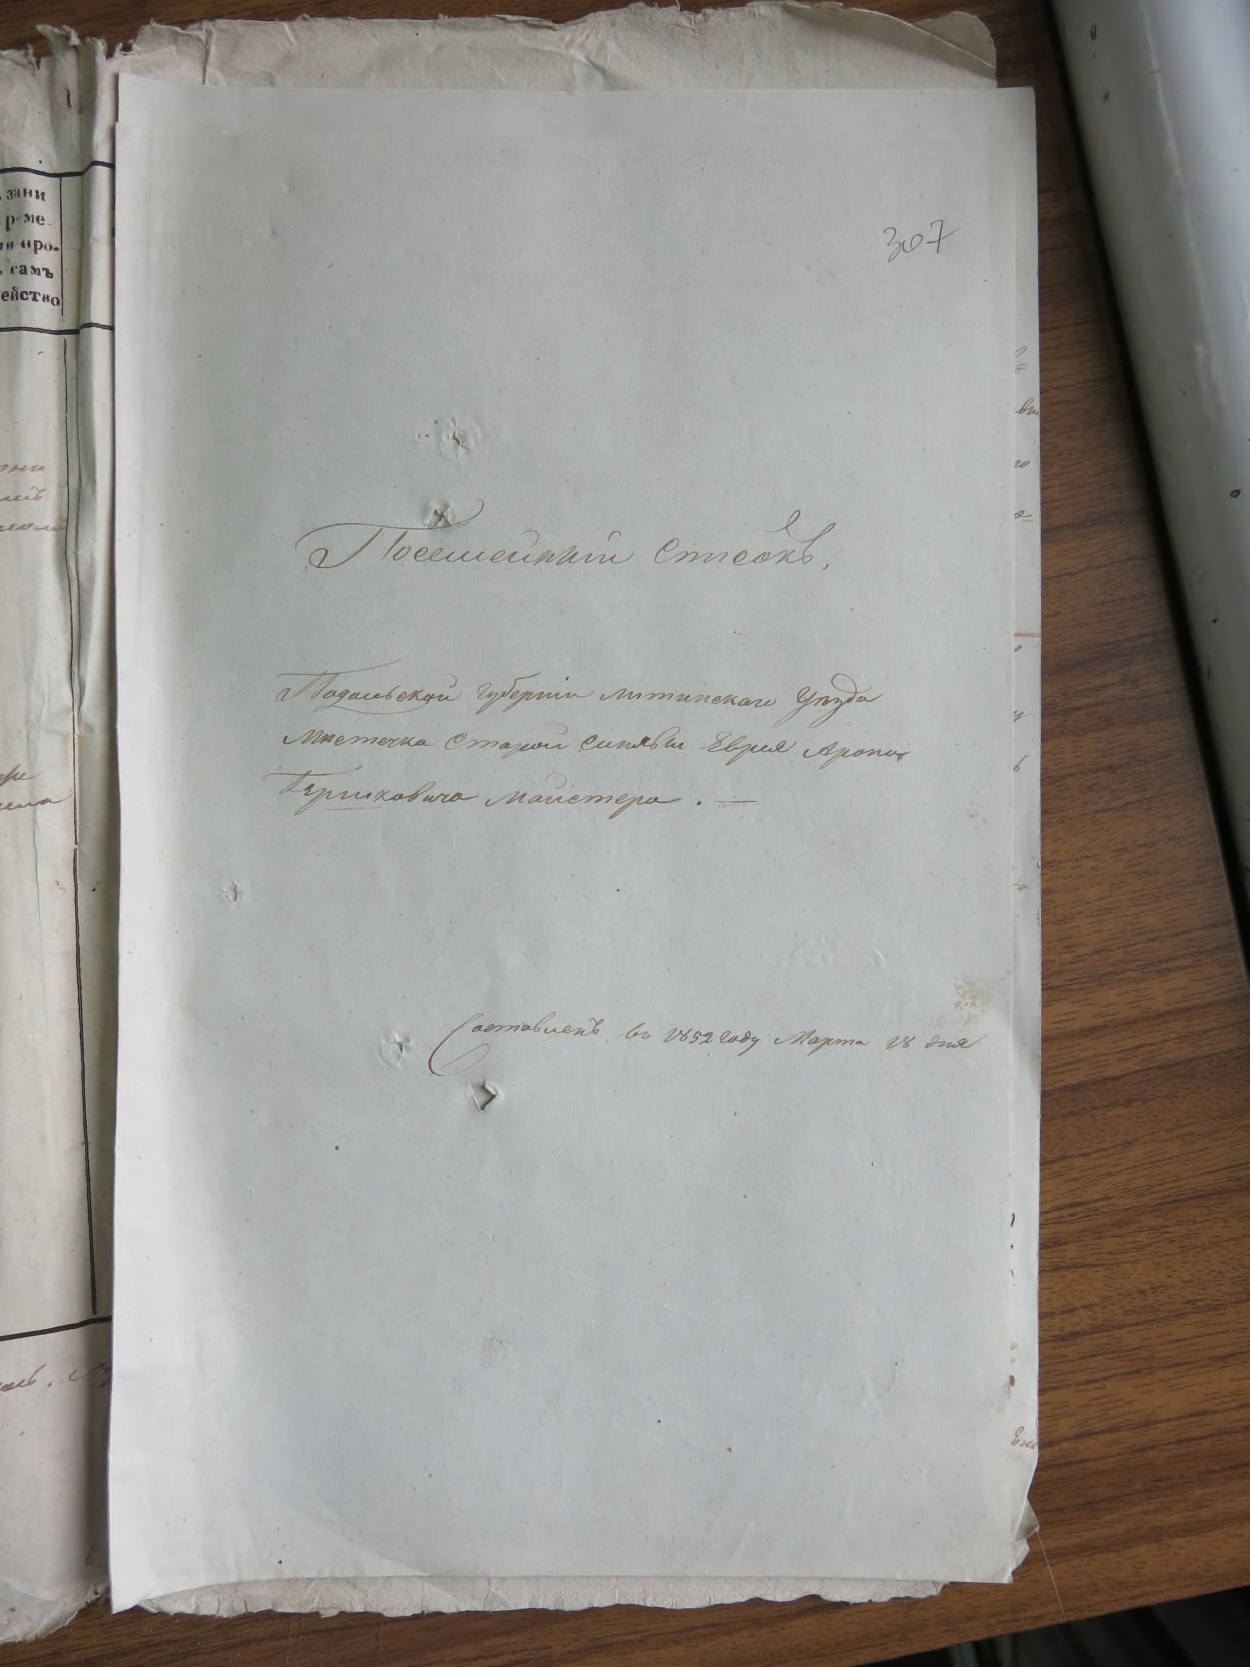 зани
реме-
ли про-
самъ
ейство
307
Посемейный списокъ,
Подольской Губерніи Литинскаго Уѣзда
Мѣстечка Старой Синявы Еврея Арона
Гершковича Майстера. —
Составленъ въ 1852 году Марта 18 дня